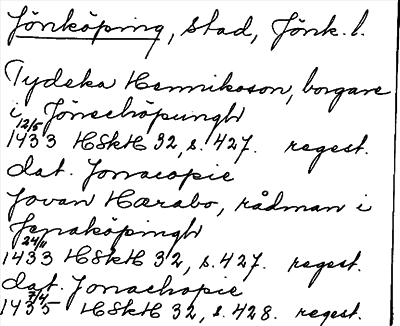 Jönköping, stad, Jönk. l.
Tydeka Henrikson, borgare
i Jönechöpungh
12/5
1433 HSkH 32, s. 427. regest.
dat. Jonacopie
Jovan Harabo, rådman i
Jenaköpingh
24/11
1433 HSkH 32, s. 427. regest.
dat. Jonachopie
7/4
1435 HSkH 32, s. 428. regest.